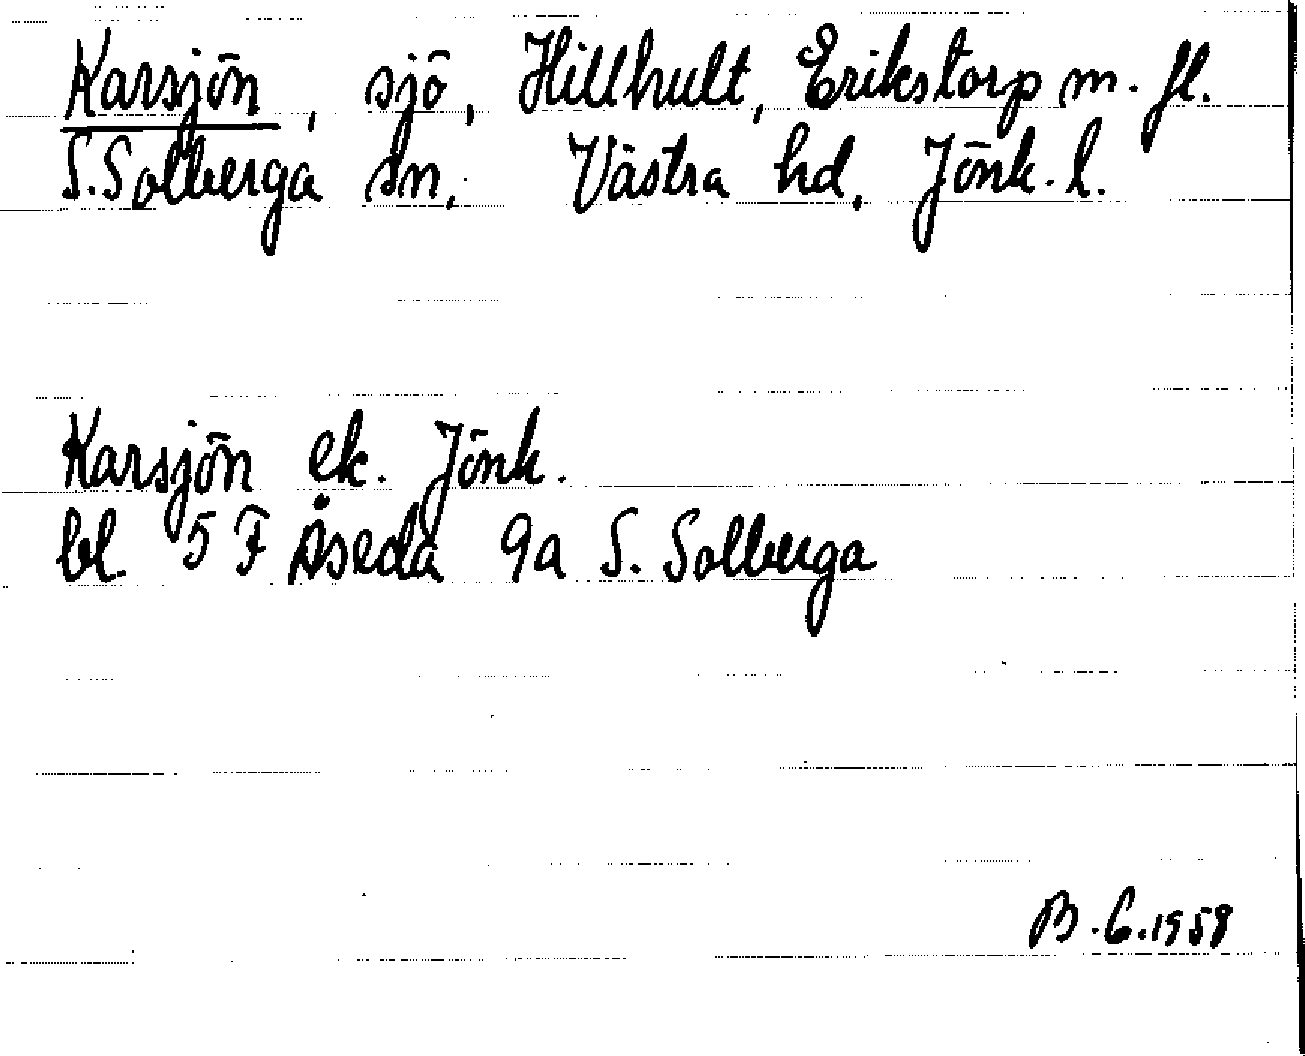 Karsjön, sjö, Hillhult, Erikstorp m. fl.
S. Solberga sn. Västra hd. Jönk. l.
Karsjön ek. Jönk.
bl. 5 F Åseda 9a S. Solberga
B. G. 1958